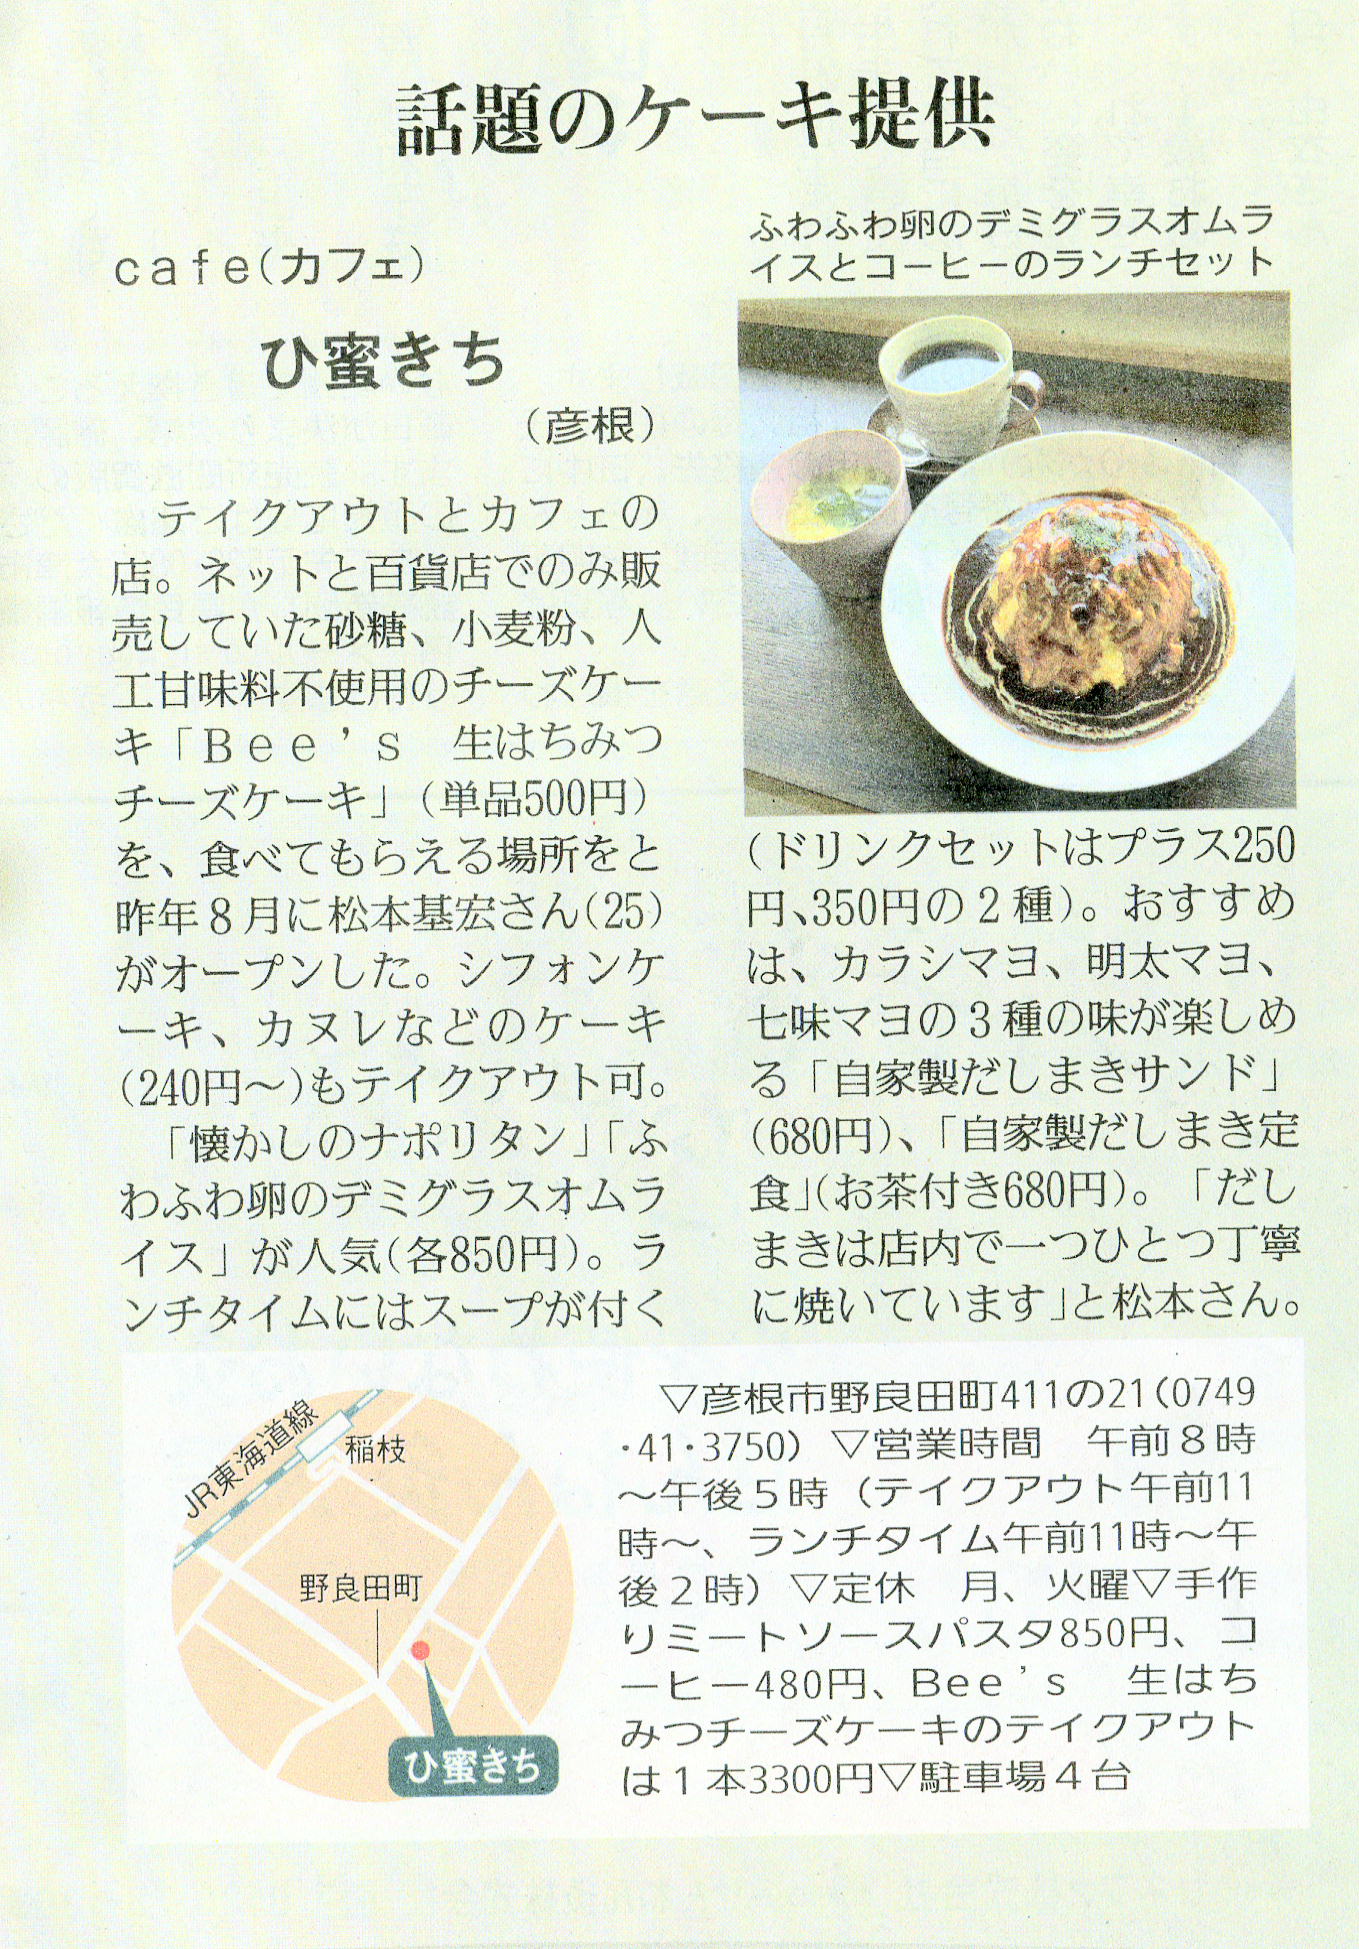 話題のケーキ提供
cafe(カフェ)
ひ蜜きち
(彦根)
テイクアウトとカフェの
店。ネットと百貨店でのみ販
売していた砂糖、小麦粉、人
工甘味料不使用のチーズケー
キ「Bee's　生はちみつ
チーズケーキ」(単品500円)
を、食べてもらえる場所をと
昨年8月に松本基宏さん(25)
がオープンした。シフォンケ
ーキ、カヌレなどのケーキ
(240円〜)もテイクアウト可。
「懐かしのナポリタン」「ふ
わふわ卵のデミグラスオムラ
イス」が人気(各850円)。ラ
ンチタイムにはスープが付く
ふわふわ卵のデミグラスオムラ
イスとコーヒーのランチセット
(ドリンクセットはプラス250
円、350円の2種)。おすすめ
は、カラシマヨ、明太マヨ、
七味マヨの3種の味が楽しめ
る「自家製だしまきサンド」
(680円)、「自家製だしまき定
食」(お茶付き680円)。「だし
まきは店内で一つひとつ丁寧
に焼いています」と松本さん。
JR東海道線
稲枝
野良田町
ひ蜜きち
▽彦根市野良田町411の21(0749
・41・3750) ▽営業時間　午前8時
〜午後5時 (テイクアウト午前11
時〜、ランチタイム午前11時〜午
後2時) ▽定休　月、火曜▽手作
りミートソースパスタ850円、コ
ーヒー480円、Bee's　生はち
みつチーズケーキのテイクアウト
は1本3300円▽駐車場4台